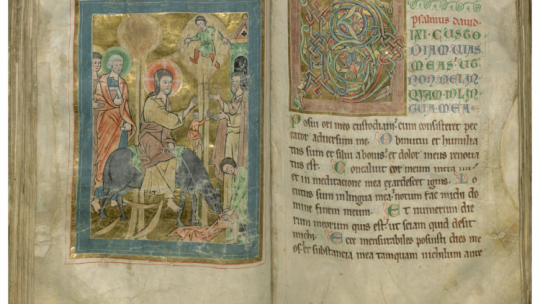 psalmus david
IXI CUSTO
DIAM UIAS
MEAS UT
NON DELIN
QUAM IN LIN
GUA MEA
Posui ori meo custodiam cum consisteret pec
cator adversum me. Obmutui et humilia
tus sum et silui a bonis et dolor meus renova
tus est. Concaluit cor meum intra me
et in meditacione mea exardescet ignis. Lo
cutus sum in lingua mea notum fac michi do
mine finem meum. Et numerum die
rum meorum quis est ut sciam quid desit
michi. Ecce mensurabiles posuisti dies me
os et substantia mea tamquam nichilum ante